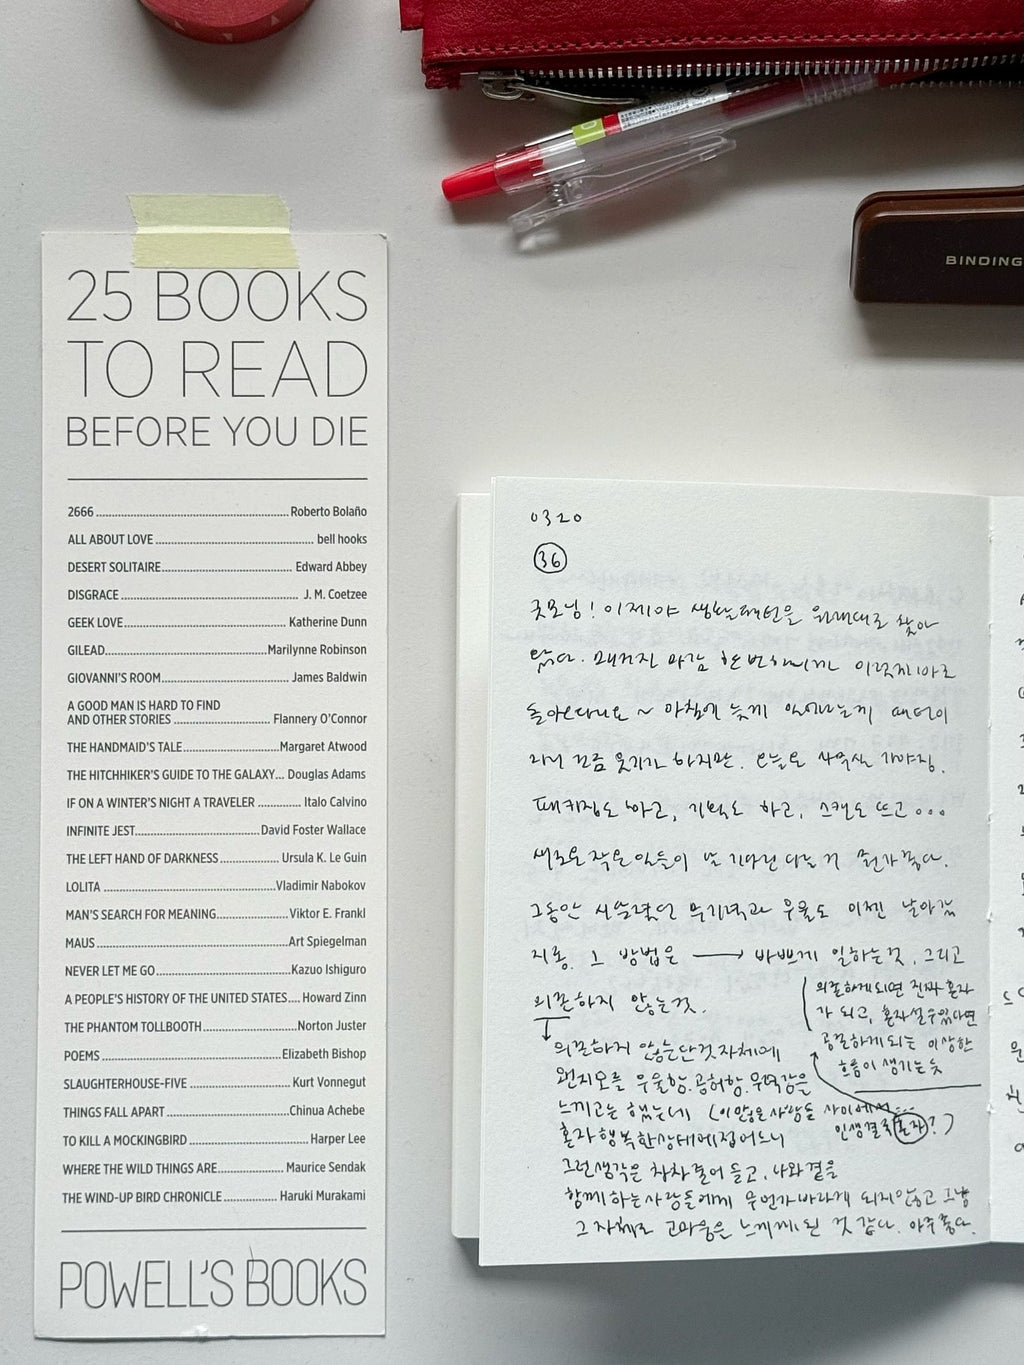 25 BOOKS
TO READ
BEFORE YOU DIE
2666 Roberto Bolaño
ALL ABOUT LOVE bell hooks
DESERT SOLITAIRE Edward Abbey
DISGRACE J. M. Coetzee
GEEK LOVE Katherine Dunn
GILEAD Marilynne Robinson
GIOVANNI'S ROOM James Baldwin
A GOOD MAN IS HARD TO FIND
AND OTHER STORIES Flannery O'Connor
THE HANDMAID'S TALE Margaret Atwood
THE HITCHHIKER'S GUIDE TO THE GALAXY Douglas Adams
IF ON A WINTER'S NIGHT A TRAVELER Italo Calvino
INFINITE JEST David Foster Wallace
THE LEFT HAND OF DARKNESS Ursula K. Le Guin
LOLITA Vladimir Nabokov
MAN'S SEARCH FOR MEANING Viktor E. Frankl
MAUS Art Spiegelman
NEVER LET ME GO Kazuo Ishiguro
A PEOPLE'S HISTORY OF THE UNITED STATES Howard Zinn
THE PHANTOM TOLLBOOTH Norton Juster
POEMS Elizabeth Bishop
SLAUGHTERHOUSE-FIVE Kurt Vonnegut
THINGS FALL APART Chinua Achebe
TO KILL A MOCKINGBIRD Harper Lee
WHERE THE WILD THINGS ARE Maurice Sendak
THE WIND-UP BIRD CHRONICLE Haruki Murakami
POWELL'S BOOKS
BINDING
0320
36
굿모닝! 이제야 생활패턴을 원래대로 찾아
왔다. 마감 한번 하니까
돌아온다니요 ~ 아침에 늦게 일어나는게
조금 웃기긴 하지만. 오늘은 가야징.
패키징도 하고, 기록도 하고, 스캔도 뜨고...
새로운 작은 일들이 날 기다린다는 거 좋다.
그동안 시달렸던 무기력과 우울도 이젠 날아갔
지롱. 그 방법은 → 바쁘게 일하는것. 그리고
의존하지 않는것.
의존하게되면 진짜 혼자
가 되고, 혼자설수있다면
공존하게되는 이상한
흐름이 생기는 듯
의존하지 않는단것자체에
왠지모를 우울함. 공허함. 무력감을
느끼고는 했는데 (이 많은 사람들 사이에서...
인생결국 혼자?)
혼자 행복한상태에 접어드니
그런생각은 차차 줄어 들고, 나와 곁을
함께 하는 사람들에게 무언가 바라게 되지않고 그냥
그 자체로 고마움을 느끼게된 것 같다. 아주좋다.